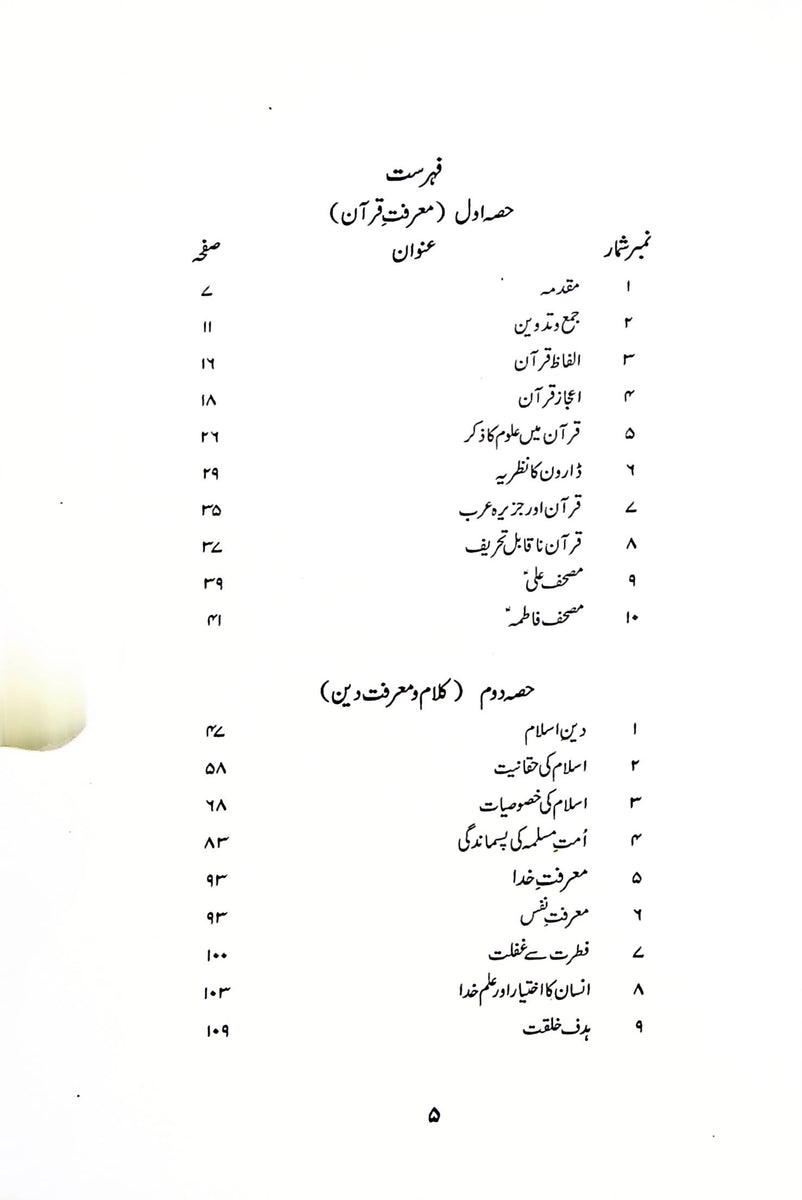 فہرست
حصہ اول (معرفتِ قرآن)
نمبر شمار عنوان صفحہ
۱ مقدمہ ۷
۲ جمع و تدوین ۱۱
۳ الفاظ قرآن ۱۶
۴ اعجاز قرآن ۱۸
۵ قرآن میں علوم کا ذکر ۲۶
۶ ڈارون کا نظریہ ۲۹
۷ قرآن اور جزیرہ عرب ۳۵
۸ قرآن ناقابل تحریف ۳۷
۹ مصحف علیؑ ۳۹
۱۰ مصحف فاطمہؑ ۴۱
حصہ دوم (کلام و معرفت دین)
۱ دینِ اسلام ۴۷
۲ اسلام کی حقانیت ۵۸
۳ اسلام کی خصوصیات ۶۸
۴ اُمتِ مسلمہ کی پسماندگی ۸۳
۵ معرفتِ خدا ۹۳
۶ معرفتِ نفس ۹۳
۷ فطرت سے غفلت ۱۰۰
۸ انسان کا اختیار اور علم خدا ۱۰۳
۹ ہدف خلقت ۱۰۹
۵